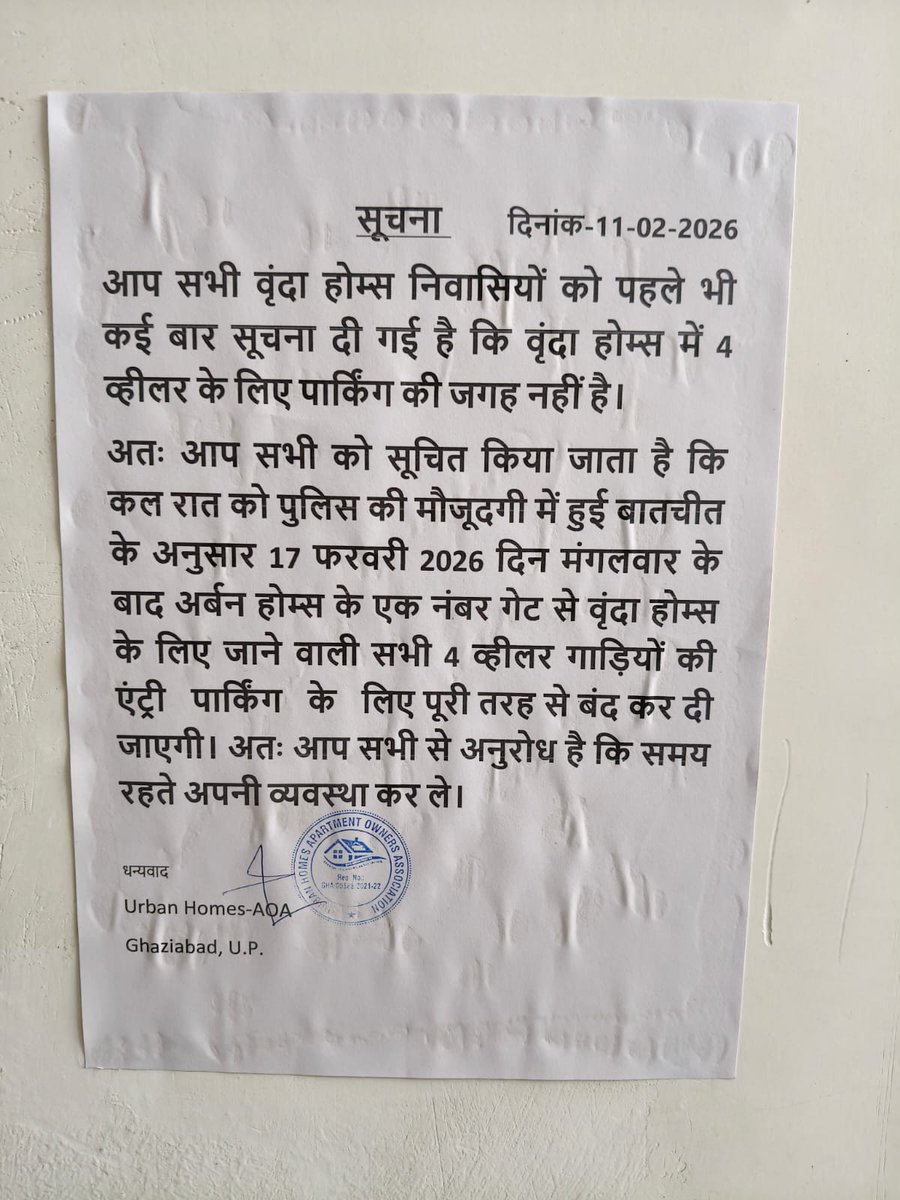 सूचना दिनांक-11-02-2026
आप सभी वृंदा होम्स निवासियों को पहले भी
कई बार सूचना दी गई है कि वृंदा होम्स में 4
व्हीलर के लिए पार्किंग की जगह नहीं है।
अतः आप सभी को सूचित किया जाता है कि
कल रात को पुलिस की मौजूदगी में हुई बातचीत
के अनुसार 17 फरवरी 2026 दिन मंगलवार के
बाद अर्बन होम्स के एक नंबर गेट से वृंदा होम्स
के लिए जाने वाली सभी 4 व्हीलर गाड़ियों की
एंट्री पार्किंग के लिए पूरी तरह से बंद कर दी
जाएगी। अतः आप सभी से अनुरोध है कि समय
रहते अपनी व्यवस्था कर ले।
धन्यवाद
Urban Homes-AOA
Ghaziabad, U.P.
HOMES APARTMENT OWNERS ASSOCIATION
Reg. No.:
2021-22